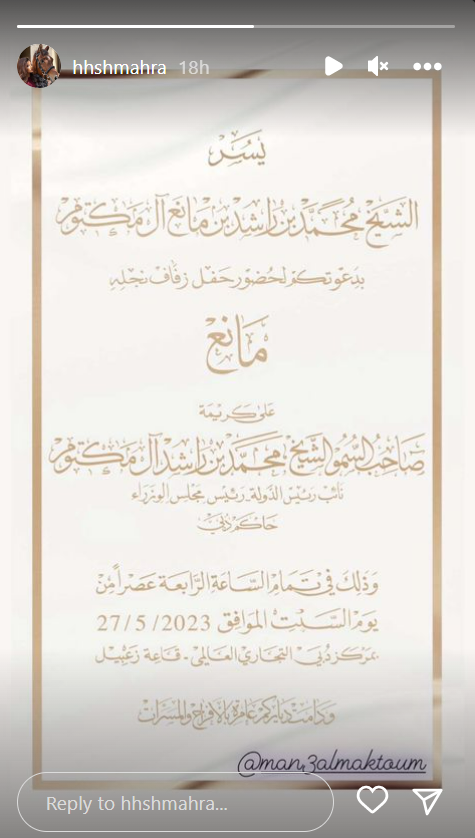 hhshmahra 18h
يَسُرّ
الشّيخ محمّد بن راشد بن مانع آل مكتوم
بدعوتكم لحضور حفل زفاف نجله
مانع
على كريمة
صاحب السّمو الشّيخ محمّد بن راشد آل مكتوم
نائب رئيس الدولة رئيس مجلس الوزراء
حاكم دبي
وذلك في تمام السّاعة الرّابعة عصراً من
يوم السّبت الموافق 27/5/2023
بمركز دبي التجاري العالمي - قاعة زعبيل
ودامت دياركم عامرة بالأفراح والمسرات
@man3almaktoum
Reply to hhshmahra...